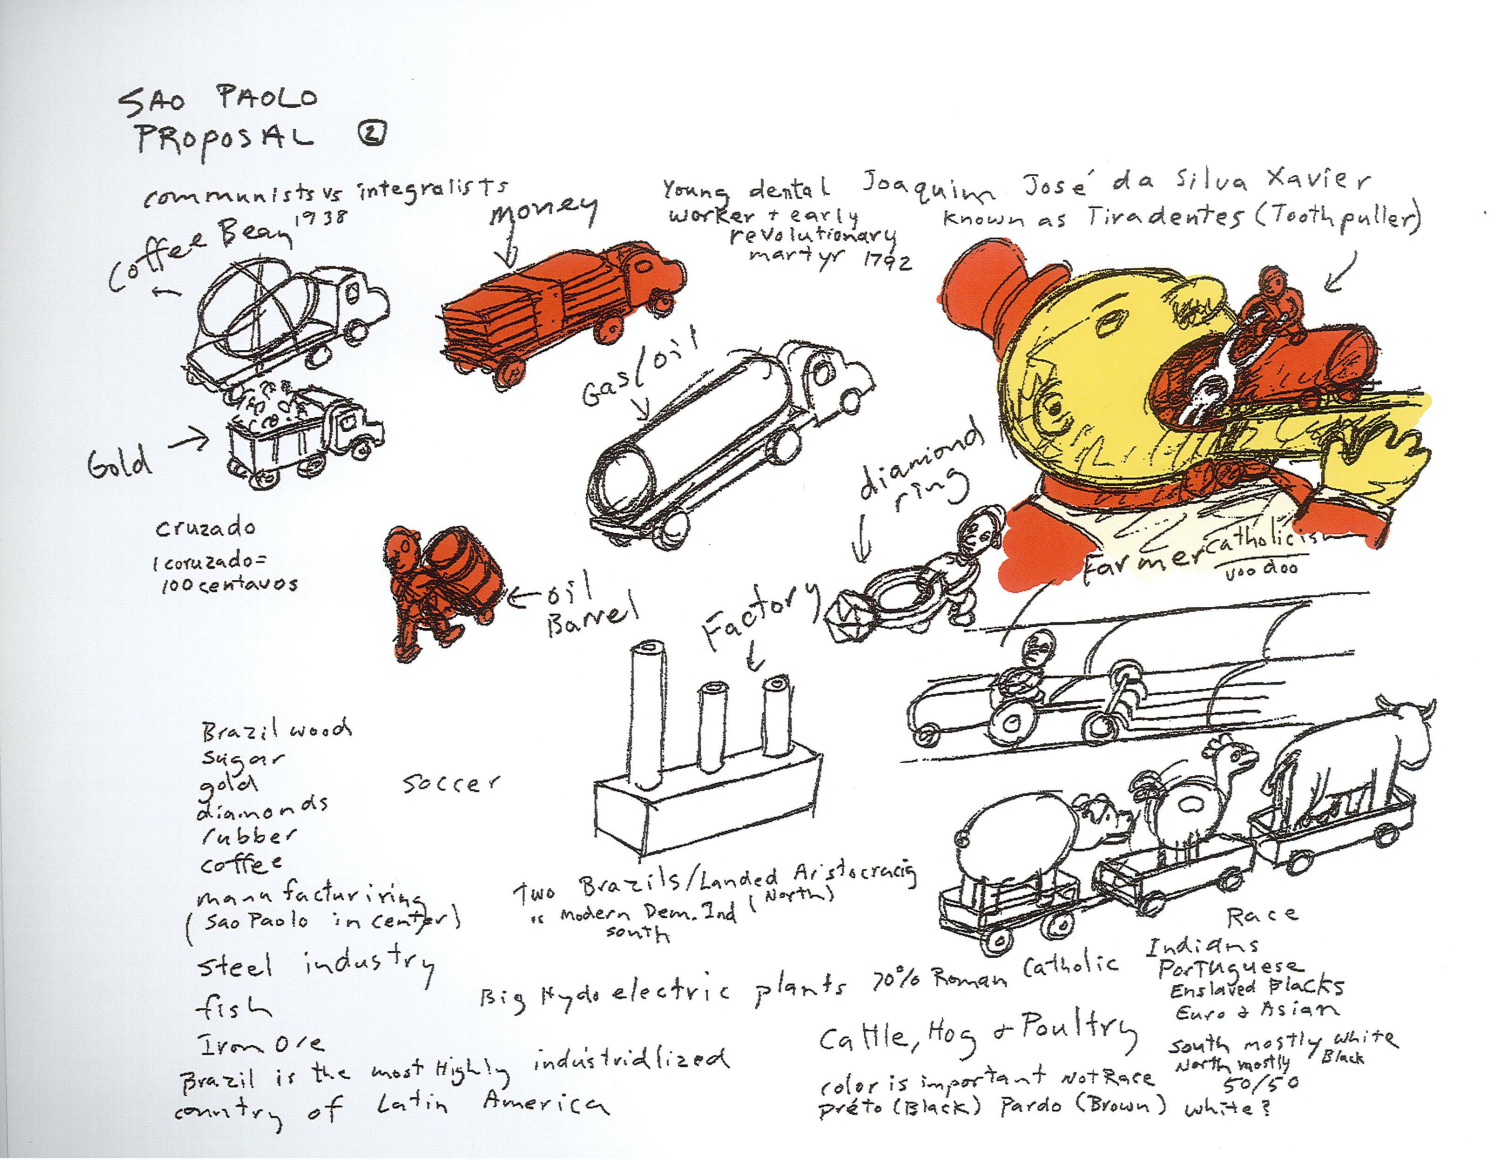 SAO PAOLO
PROPOSAL 2
communists vs integralists
1938
Coffee Bean
money
Young dental
worker + early
revolutionary
martyr 1792
Joaquim José da Silva Xavier
known as Tiradentes (Toothpuller)
Gas/oil
Gold
diamond
ring
cruzado
1 coruzado=
100 centavos
oil
Barrel
Factory
Farmer
Catholicism
voo doo
Brazil woods
sugar
gold
diamonds
rubber
coffee
manufacturiring
(Sao Paolo in center)
Steel industry
fish
Iron Ore
soccer
Two Brazils/Landed Aristocracig
(North)
vs modern Dem. Ind
south
Big Hydo electric plants
70% Roman Catholic
Race
Indians
Portuguese
Enslaved Blacks
Euro + Asian
South mostly white
North mostly Black
50/50
Cattle, Hog + Poultry
color is important Not Race
préto (Black) Pardo (Brown) white?
Brazil is the most Highly industridlized
country of Latin America